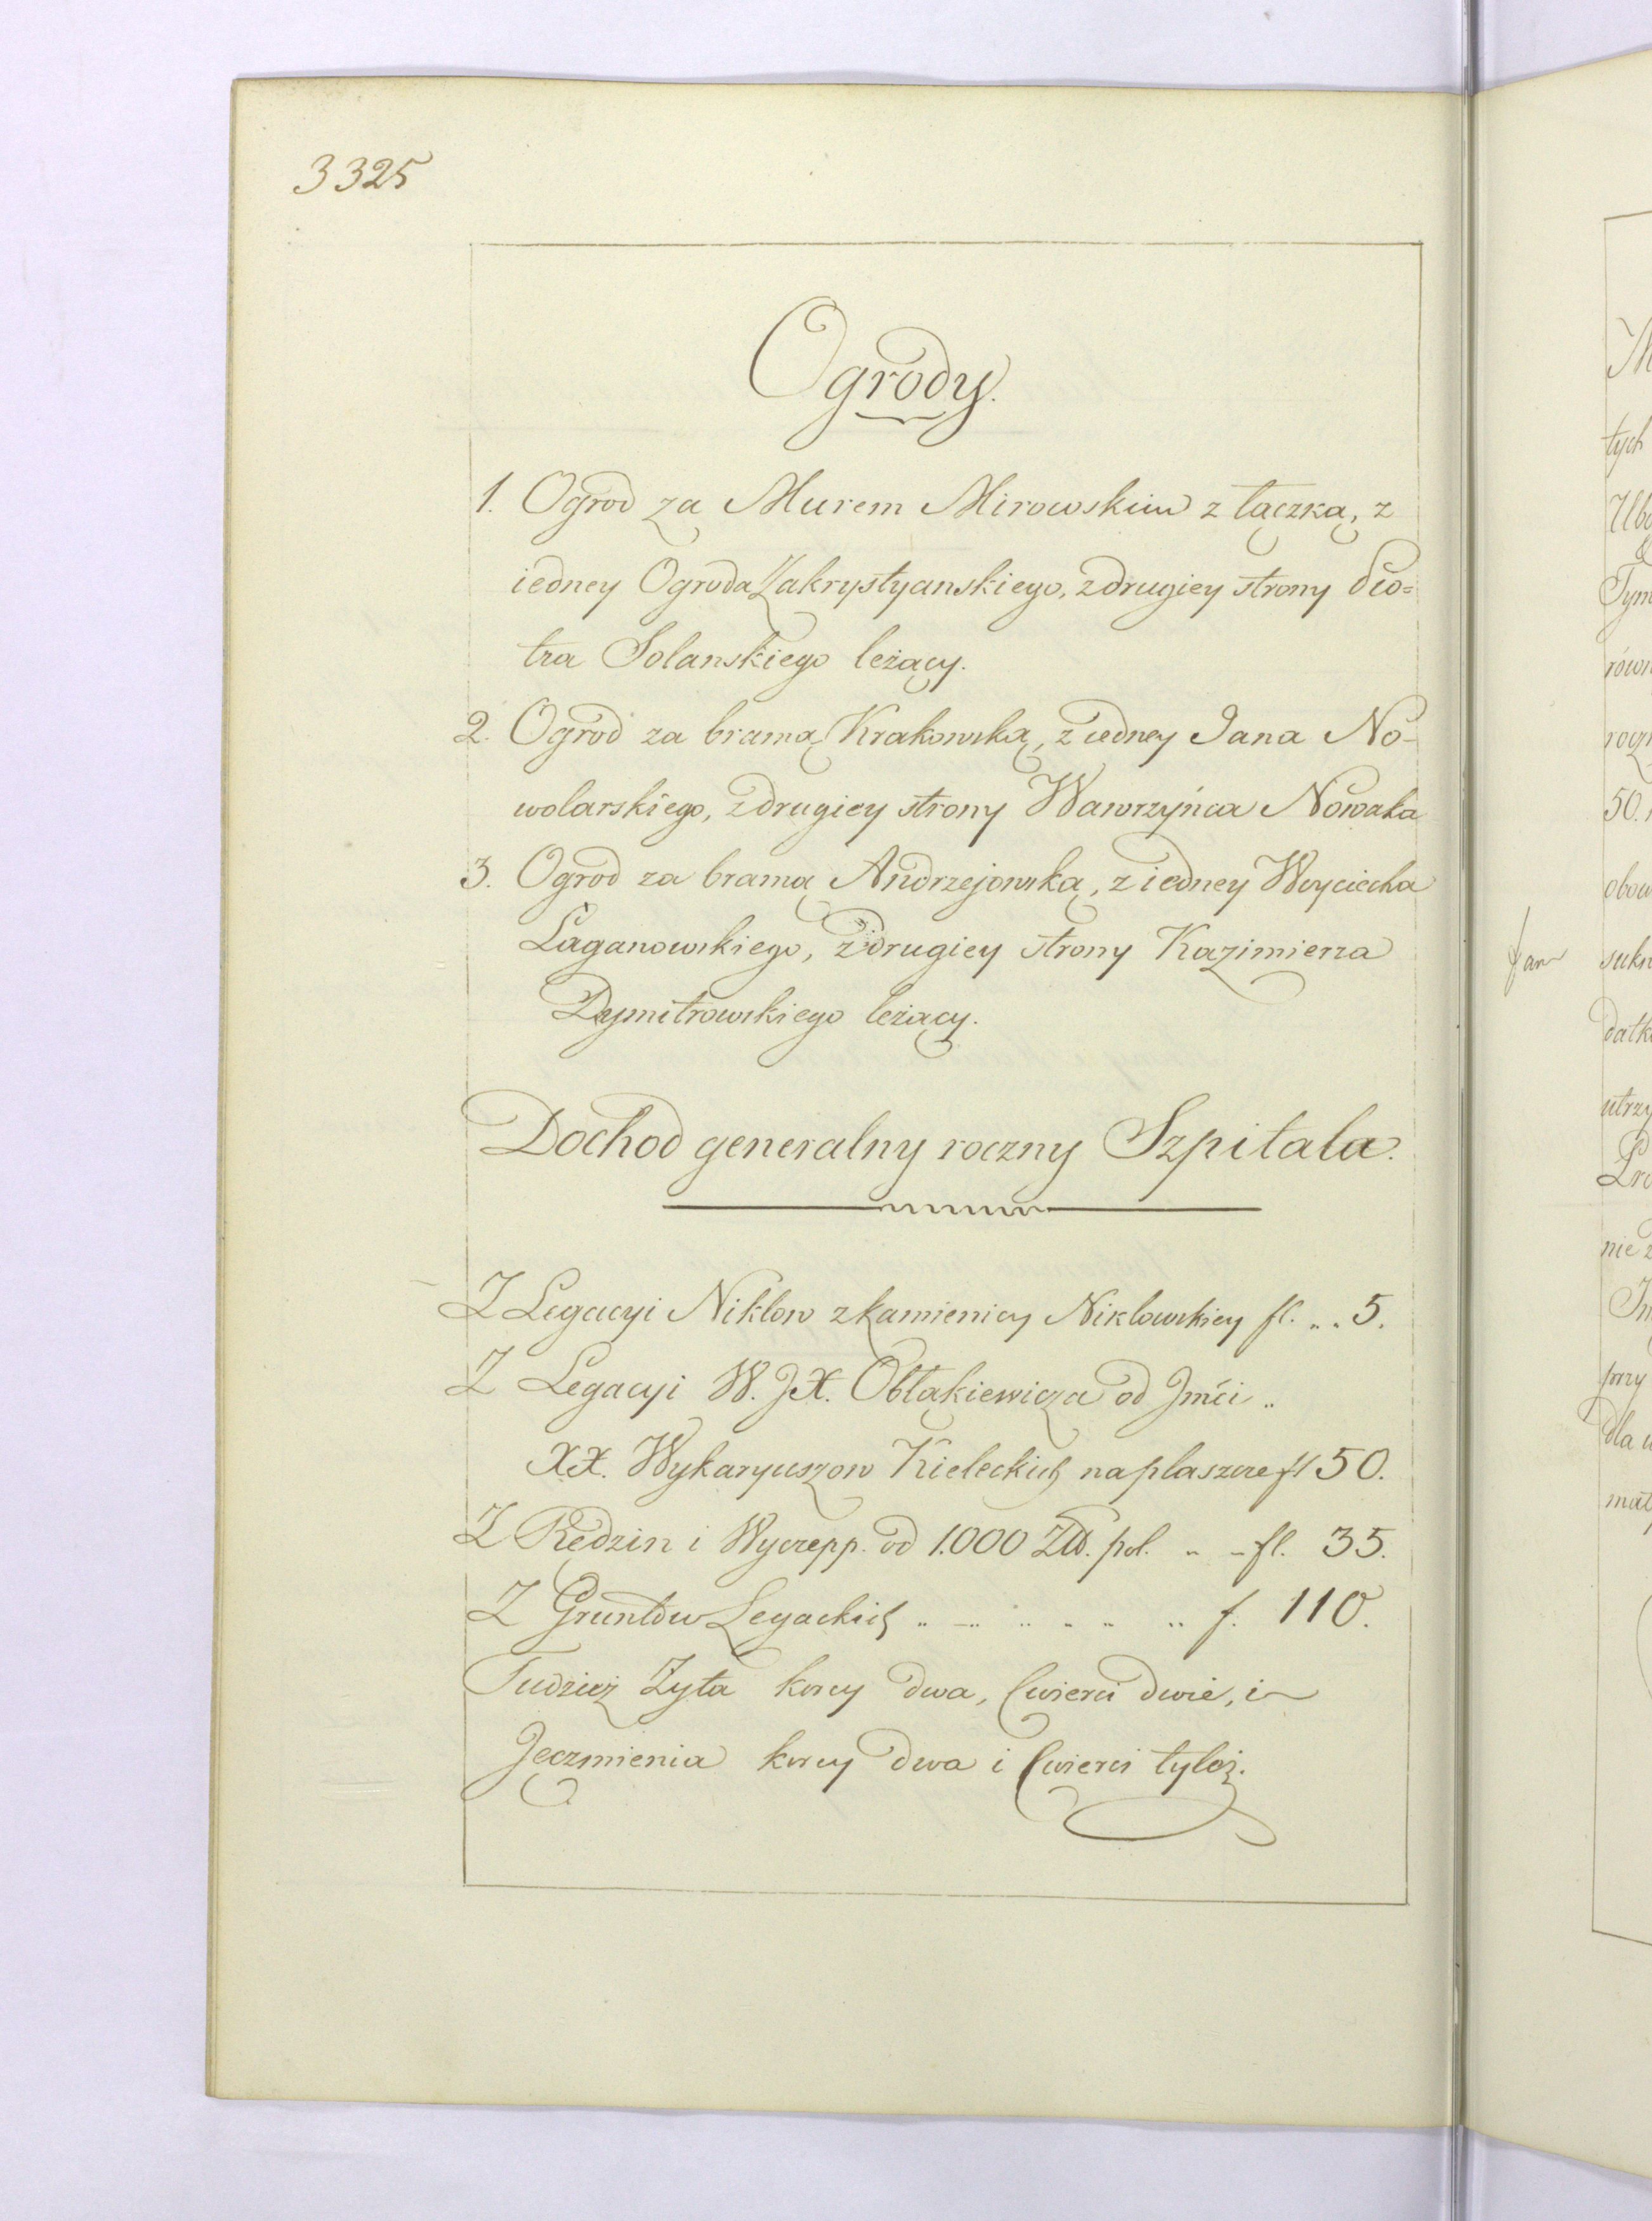 3325
Ogrody.
1. Ogrod za Murem Mirowskim z łączką, z
iedney Ogroda Zakrystyanskiego, z drugiey strony Pio=
tra Solanskiego leżący.
2. Ogrod za bramą Krakowską, z iedney Jana No-
wolarskiego, z drugiey strony Wawrzyńca Nowaka
3. Ogrod za bramą Andrzejowską, z iedney Woyciecha
Laganowskiego, z drugiey strony Kazimierza
Dymitrowskiego leżący.
Dochod generalny roczny Szpitala.
Z Legacyi Niklow z kamienicy Niklowskiey fl. .. 5.
Z Legacyi W. JX. Obłąkiewicza od Jmći ..
XX. Wykaryuszow Kieleckich na płaszcze fl 50.
Z Rędzin i Wyczepp. od 1.000 Zł. pol. .. .. fl. 35.
Z Gruntów Legackich .. .. .. .. .. .. f. 110.
Tudzież Żyta korcy dwa, Ćwierci dwie, i
Jęczmienia korcy dwa i Ćwierci tyloż.
tych
równ
50.
obow
Jan
sukn
datk
utrzy
nie z
przy
dla u